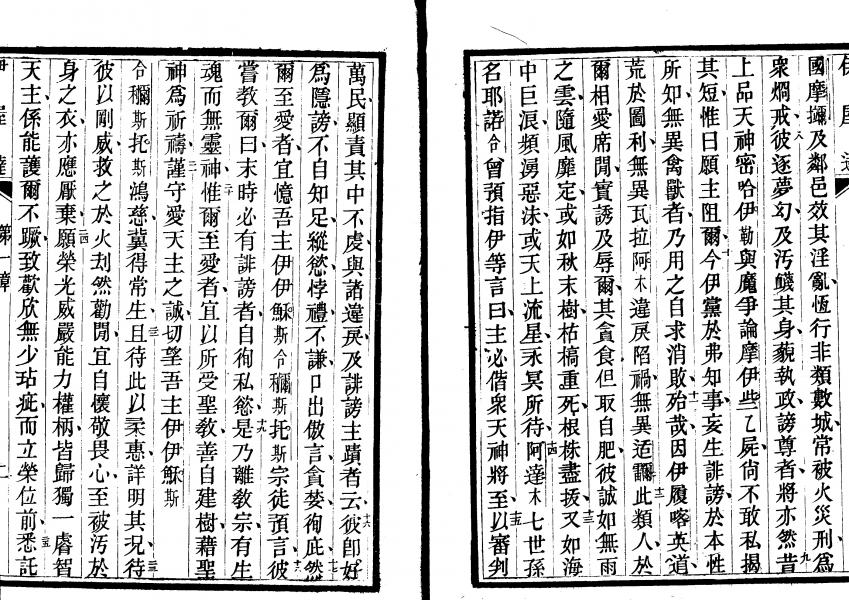 國摩擟及鄰邑效其淫亂恆行非類數城常被火災刑爲
衆燗戒彼逐夢幻及汚衊其身藐執政謗尊者將亦然昔
上品天神密哈伊勒與魔爭論摩伊些乙屍尙不敢私揚
其短惟曰願主阻爾今伊黨於弗知事妄生誹謗於本性
所知無異禽獸者乃用之自求消敗殆哉因伊履喀英道
荒於圖利無異瓦拉阿木違戾陷禍無異适爾此類人於
爾相愛席閒實誘及辱爾其貪食但取自肥彼誠如無雨
之雲隨風靡定或如秋末樹枯槁重死根株盡拔又如海
中巨浪頻湧惡沫或天上流星永冥所待阿達木七世孫
名耶諾合曾預指伊等言曰主必偕衆天神將至以審判
萬民顯責其中不虔與諸違戾及誹謗主蹟者云彼卽好
爲隱謗不自知足縱慾悖禮不謙口出傲言貪婪徇庇然
爾至愛者宜憶吾主伊伊穌斯合穪斯托斯宗徒預言彼
嘗敎爾曰末時必有誹謗者自徇私慾是乃離敎宗有生
魂而無靈神惟爾至愛者宜以所受聖敎善自建樹藉聖
神爲祈禱謹守愛天主之誠切望吾主伊伊穌斯
合穪斯托斯鴻慈冀得常生且待此以柔惠詳明其況待
彼以剛威救之於火刦然勸閒宜自懷敬畏心至被汚於
身之衣亦應厭棄願榮光威嚴能力權柄皆歸獨一睿智
天主係能護爾不蹶致歡欣無少玷疵而立榮位前悉託
第一章
二